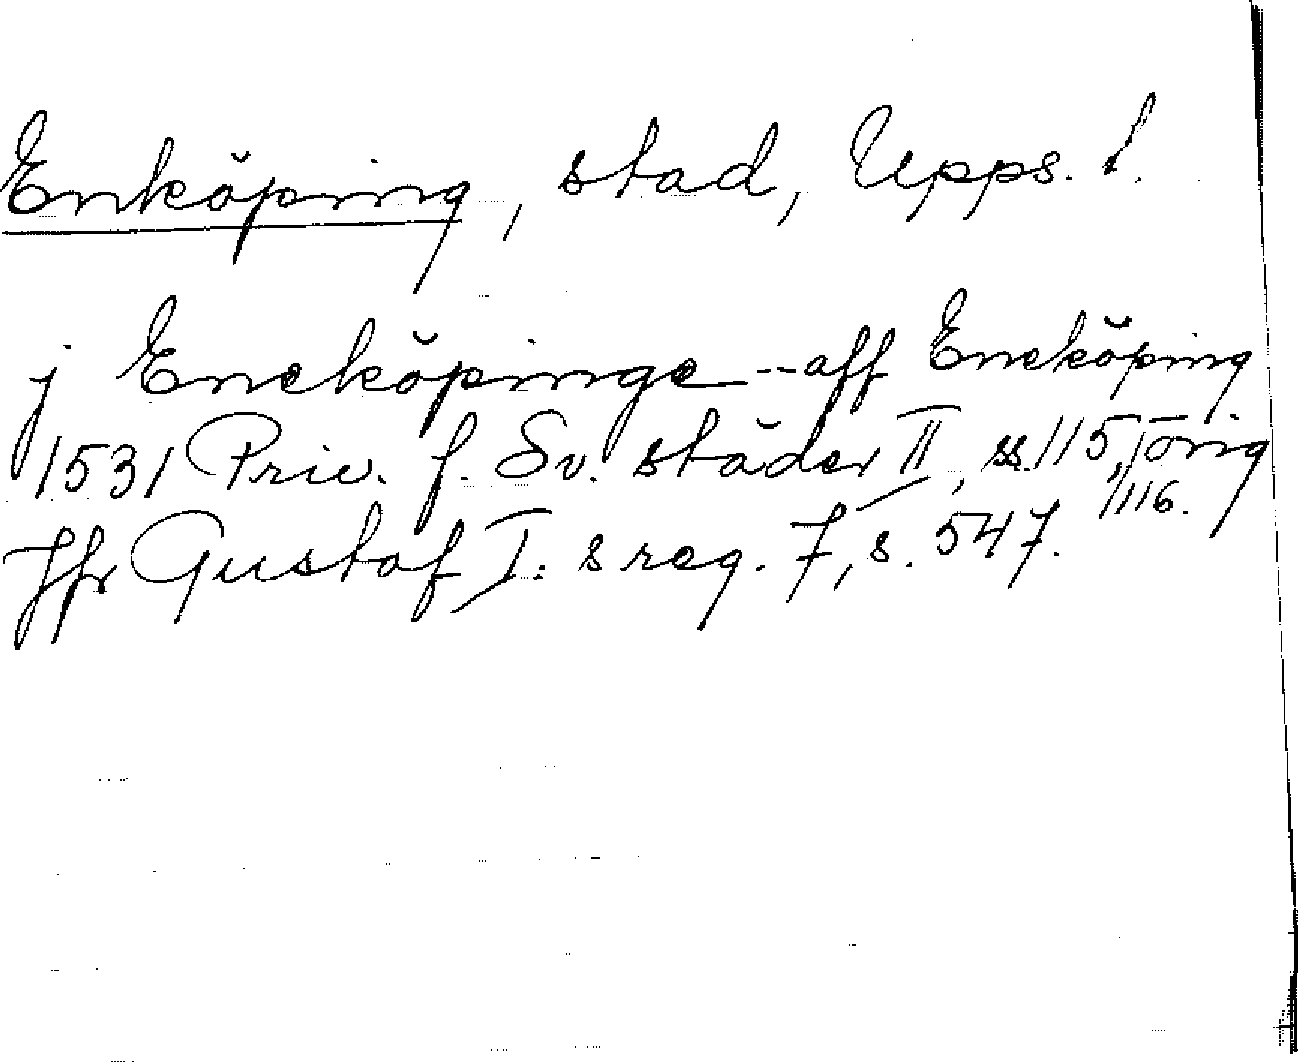 Enköping, stad, Upps. l.
j Eneköpinge -- aff Eneköping
1531 Priv. f. Sv. städer II, ss. 115, orig
116.
Jfr Gustaf I:s reg. 7, s. 547.